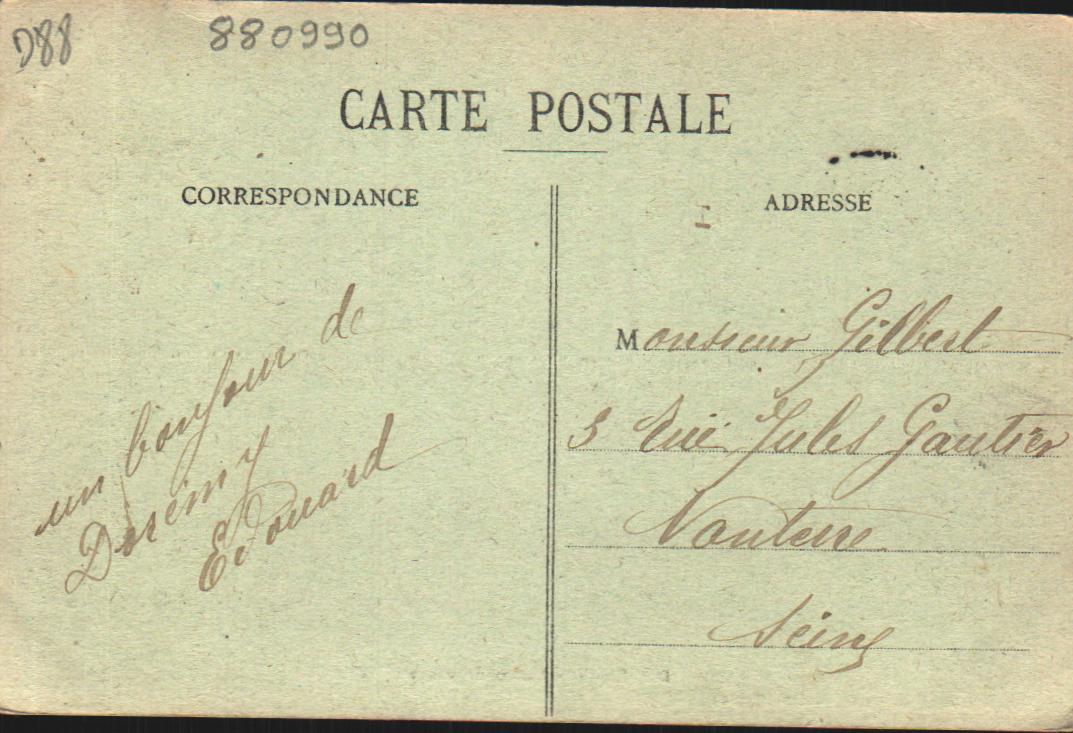 D88
880990
CARTE POSTALE
CORRESPONDANCE
ADRESSE
un bonjour de
Edouard
Monsieur Gilbert
3 Rue Jules Gautier
Nanterre
Seine